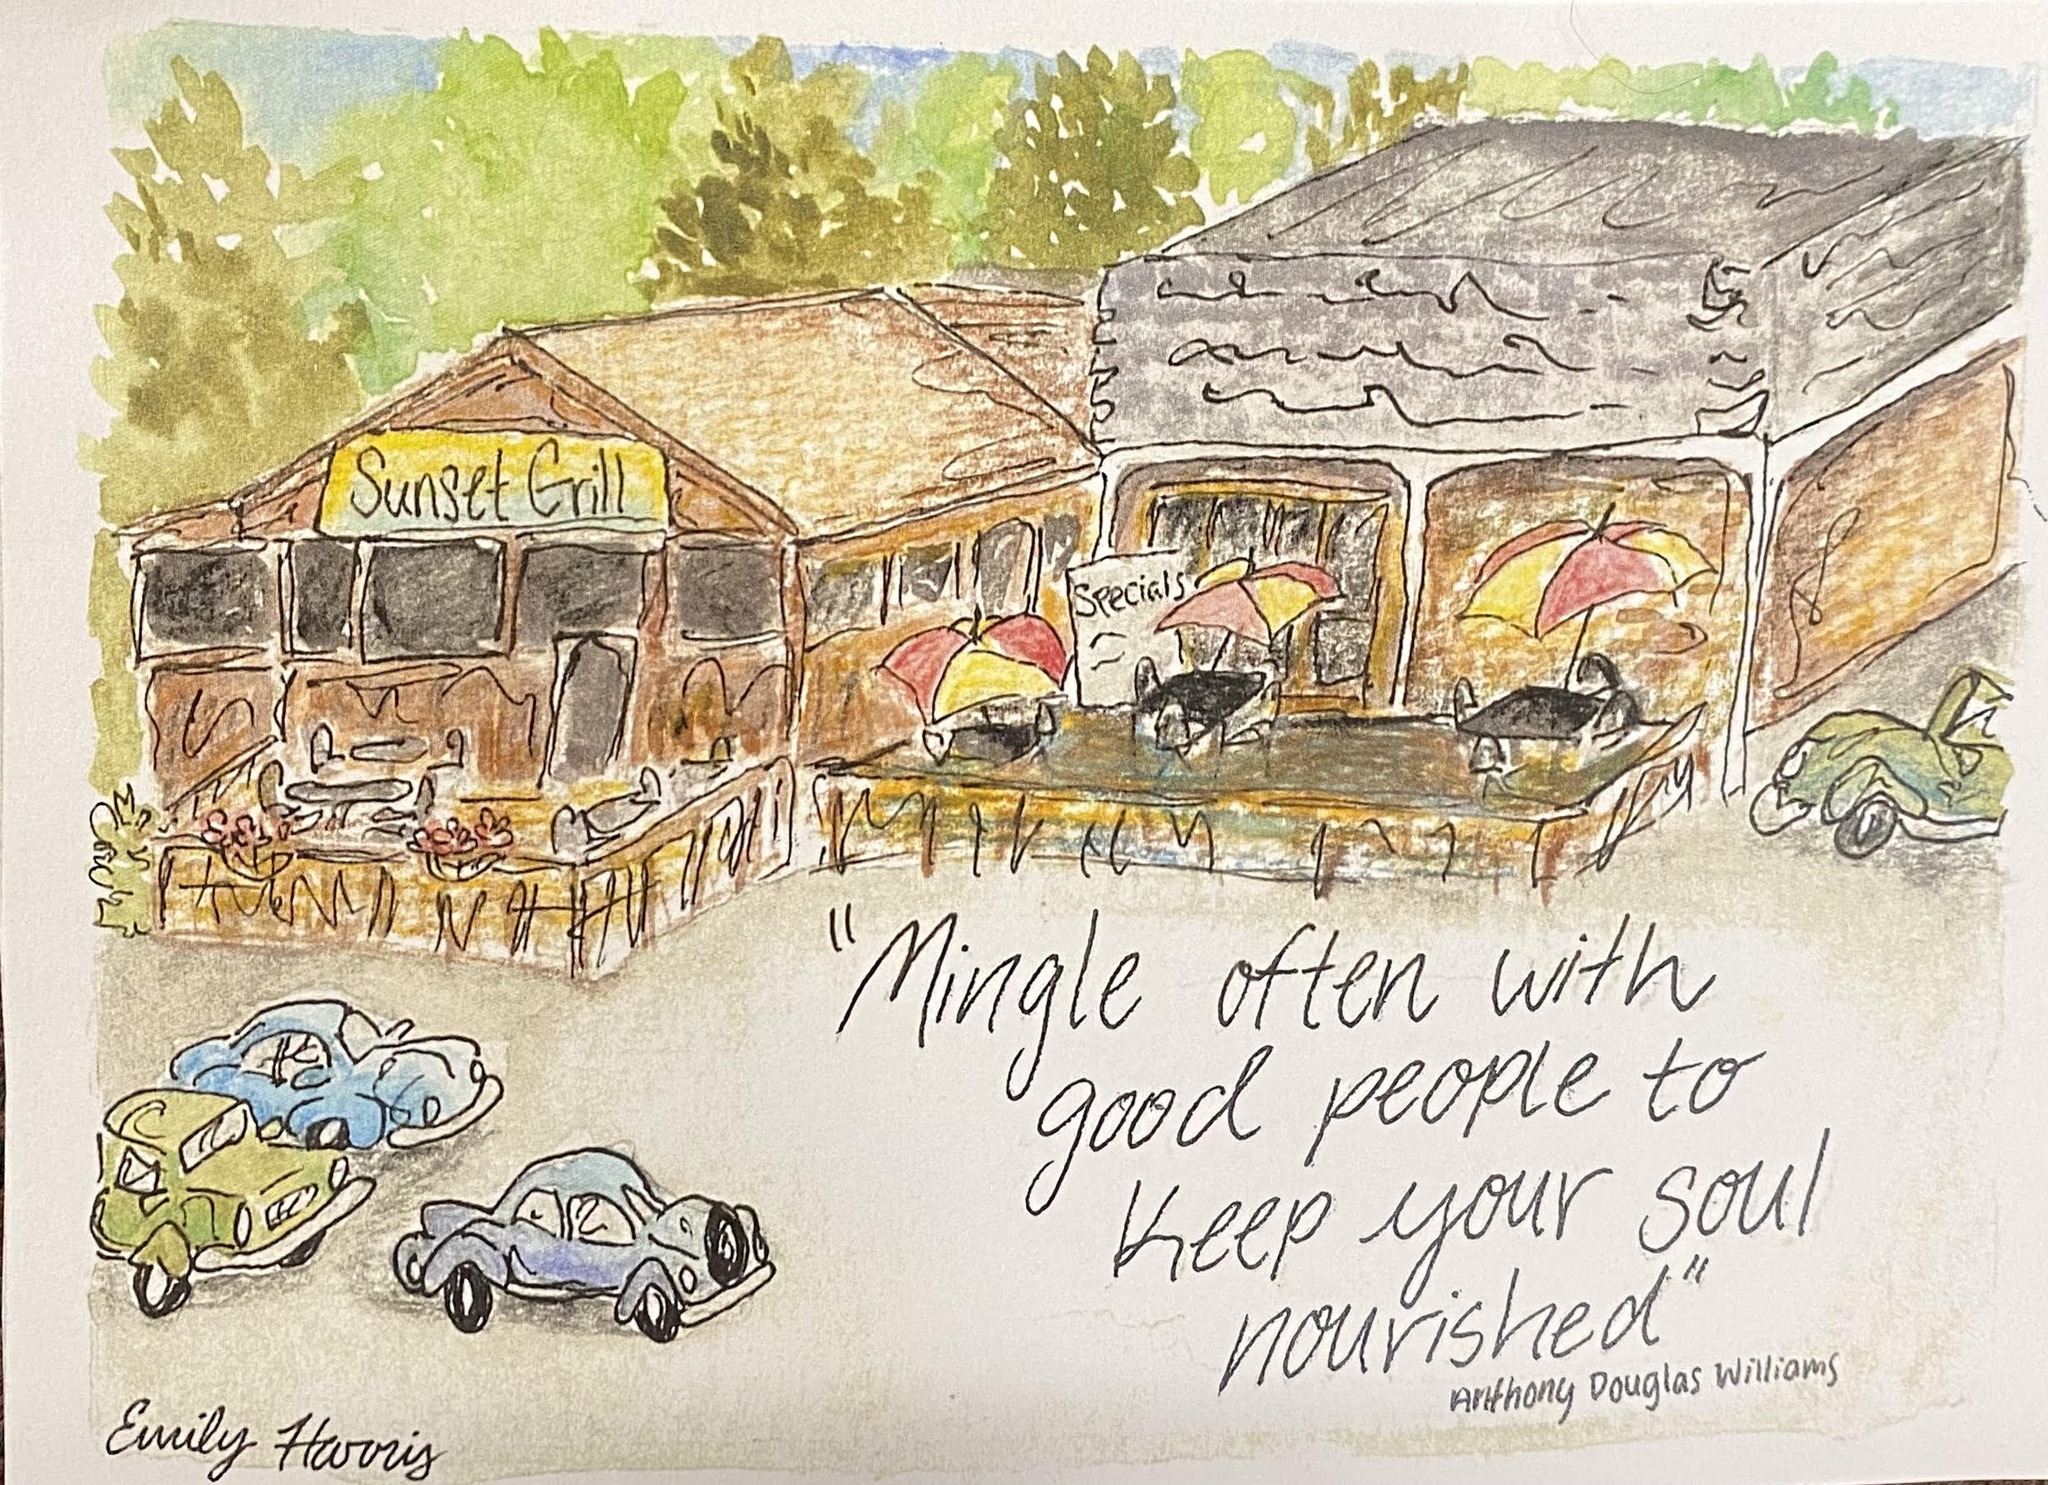 Sunset Grill
Specials
"Mingle often with
good people to
keep your soul
nourished"
Anthony Douglas Williams
Emily Harris